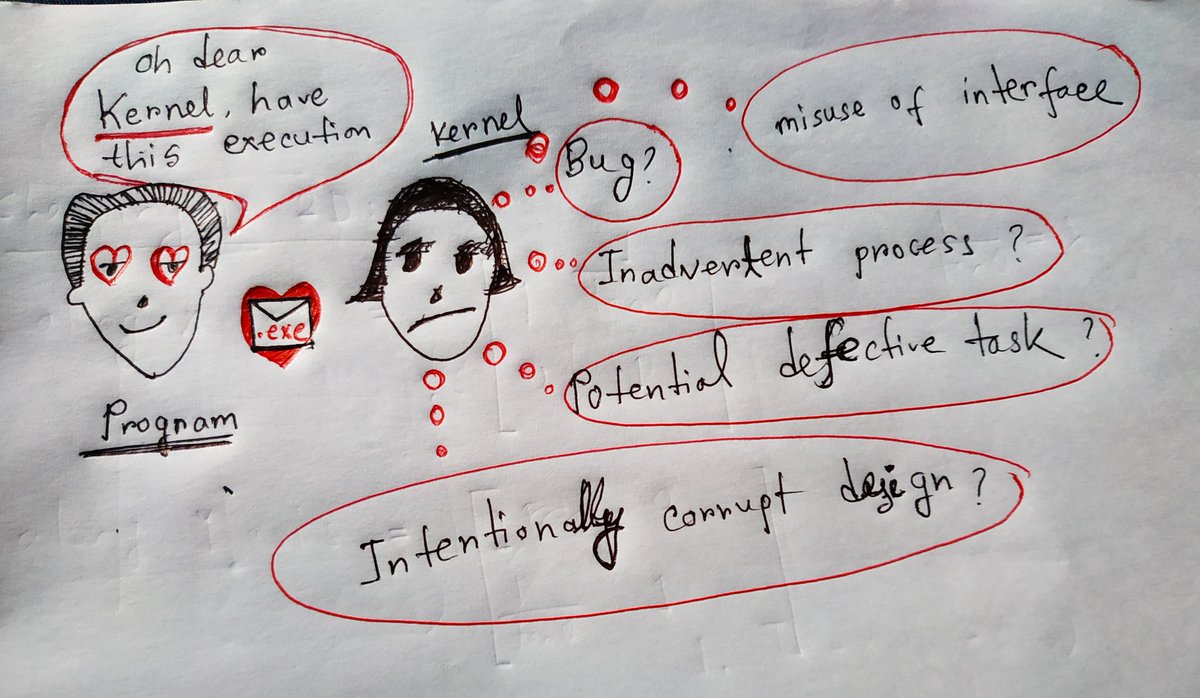 Oh dear
Kernel, have
this execution
Kernel
misuse of interface
Bug?
Inadvertent process ?
.exe
Potential defective task ?
Program
Intentionally corrupt design ?